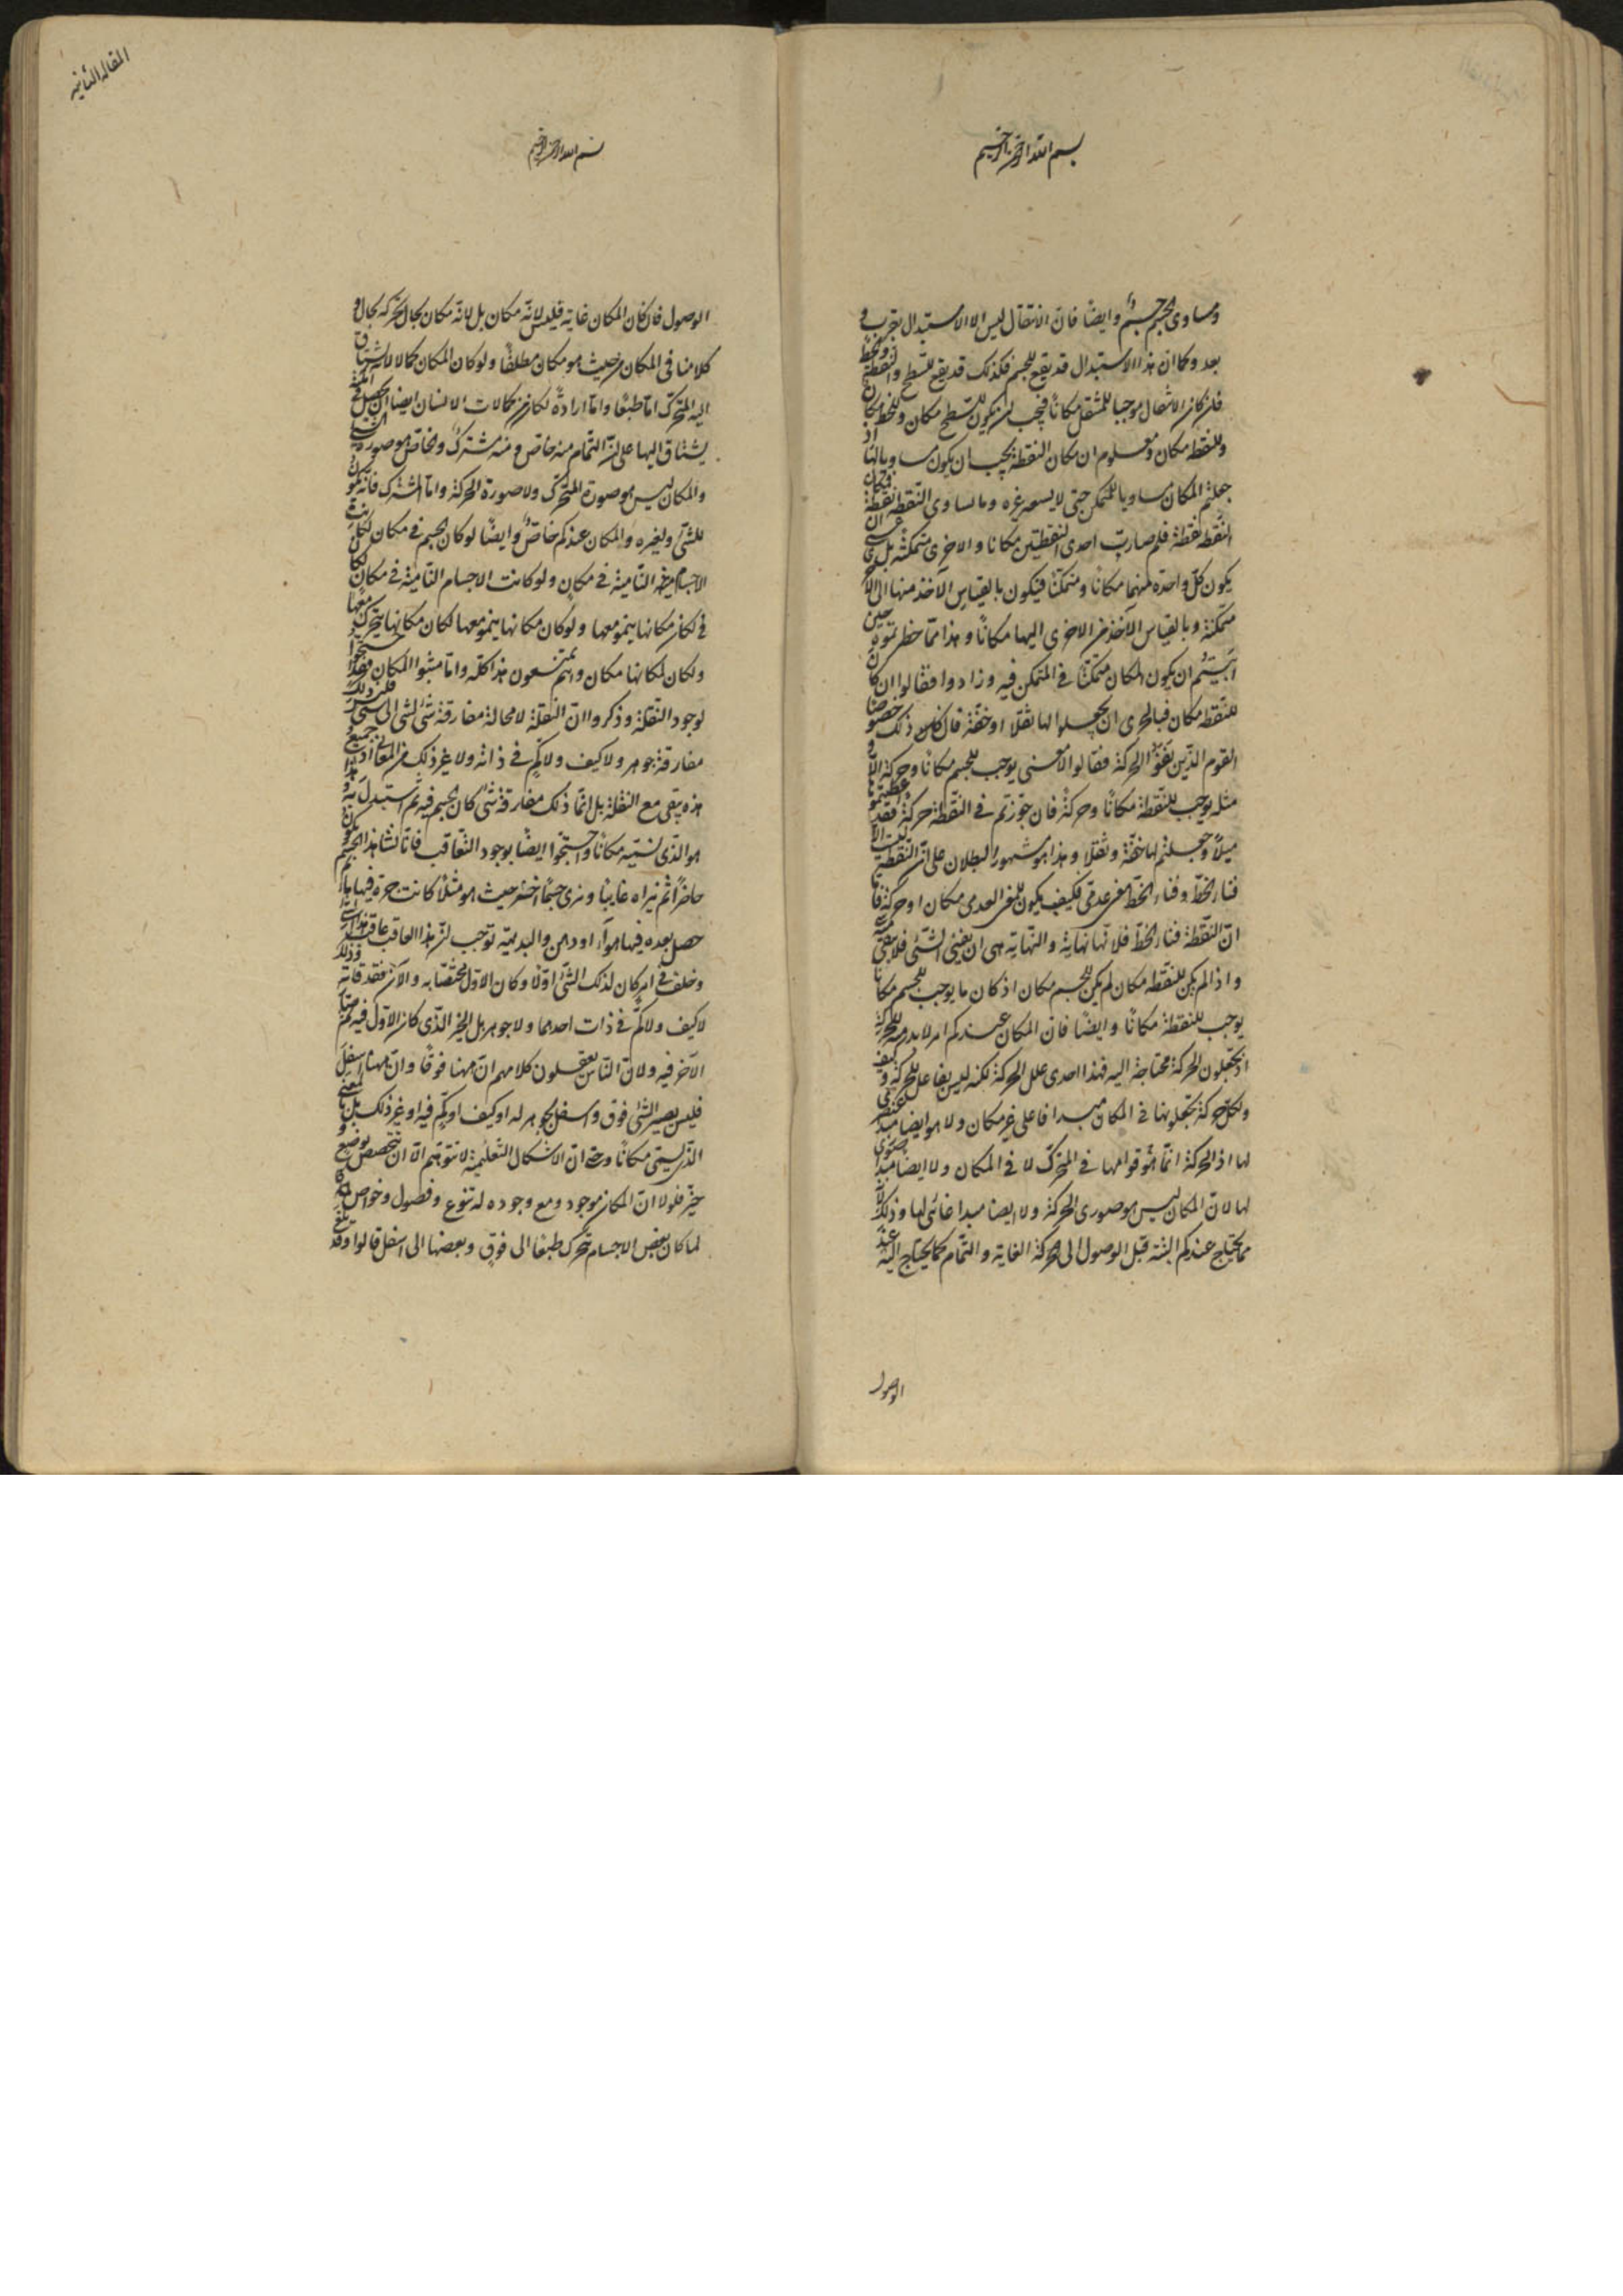 بسم الله الرحمن الرحيم
ومساوى الجسم جسم وايضا فان الانتقال ليس الا الاستبدال بقرب و
بعد وكما ان هذا الاستبدال قد يقع للجسم فكذلك قد يقع للسطح والخط والنقطة
فلو كان الانتقال موجبا للمنتقل مكانا فيجب ان يكون للسطح مكان وللخط مكان
وللنقطة مكان ومعلوم ان مكان النقطة يجب ان يكون مساويا لها اذ
جعلتم المكان مساويا للمتمكن حتى لا يسع غيره وما يساوى النقطة نقطة فمكان
النقطة نقطة فلم صارت احدى النقطتين مكانا والاخرى متمكنة بل عسى ان
يكون كل واحدة منهما مكانا ومتمكنا فيكون بالقياس الآخذ منها الى الاخرى
متمكنة وبالقياس الآخذ من الاخرى اليها مكانا وهذا مما حظرتموه حين
ابيتم ان يكون المكان متمكنا في المتمكن فيه وزادوا فقالوا ان كان
للنقطة مكان فبالحرى ان تجعلوا لها ثقلا او خفة فان ذلك خصوصا
القوم الذين نفوا الحركة فقالوا لا معنى يوجب للجسم مكانا وحركة الا و
مثله يوجب للنقطة مكانا وحركة فان جوزتم في النقطة حركة فقد اعطيتموها
ميلا وجعلتم لها خفة وثقلا وهذا مشهور البطلان على ان النقطة ليست الا
فناء الخط وفناء الخط معنى عدمى فكيف يكون للمعنى العدمى مكان او حركة فاما
ان النقطة فناء الخط فلانها نهاية والنهاية هى ان يفنى الشئ فلا يبقى منه شئ
واذا لم يكن للنقطة مكان لم يكن للجسم مكان اذ كان ما يوجب للجسم مكانا
يوجب للنقطة مكانا وايضا فان المكان عندكم امر لا بد منه للحركة
اذ تجعلون الحركة محتاجة اليه فهذا احدى علل الحركة لكنه ليس بفاعل للحركة وكيف
ولكل حركة تجعلونها في المكان مبدأ فاعلى غير مكان ولا هو ايضا مبدأ عنصرى
لها اذ الحركة انما هو قوامها في المتحرك لا في المكان ولا ايضا مبدأ صورى
لها لان المكان ليس هو صورى الحركة ولا ايضا مبدأ غائى لها وذلك لانه
مما يحتاج عندكم اليه قبل الوصول الى الحركة الغاية والتمام كما يحتاج اليه عند
الوصول
المقالة الثانية
بسم الله الرحمن الرحيم
الوصول فان كان المكان غاية فليس لانه مكان بل لانه مكان بحال لحركة بحال و
كلامنا فى المكان من حيث هو مكان مطلقا ولو كان المكان كمالا لانه يشتاق
اليه المتحرك اما طبعا واما ارادة لكان من كمالات الانسان ايضا ان يحصل في امكنة
يشتاق اليها على ان التمام منه خاص ومنه مشترك والخاص هو صورة الشئ
والمكان ليس هو صورة المتحرك ولا صورة الحركة واما المشترك فانه يكون
للشئ ولغيره والمكان عندكم خاص وايضا لو كان الجسم فى مكان لكانت
الاجسام النامية في مكان ولو كانت الاجسام النامية في مكان
لكان مكانها ينمو معها ولو كان مكانها ينمو معها لكان مكانها يتحرك معها
ولكان لمكانها مكان وانتم تمنعون هذا كله واما مثبتوا المكان فقد احتجوا
لوجود النقلة وذكروا ان النقلة لا محالة مفارقة شئ لشئ الى شئ وليس ذلك
مفارقة جوهر ولا كيف ولا كم في ذاته ولا غير ذلك من المعانى اذ جميع
هذه يبقى مع النقلة بل انما ذلك مفارقة شئ كان الجسم فيه ثم استبدل به وهذا
هو الذى نسميه مكانا واحتجوا ايضا بوجود التعاقب فانا نشاهد الجسم يكون
حاضرا ثم نراه غايبا ونرى جسما آخر حيث هو مثلا كانت جرة فيها ماء ثم
حصل بعده فيها هواء او دهن والبديهة توجب ان هذا المعاقب عاقب هذا الشئ
وخلفه في امر كان لذلك الشئ اولا وكان الاول مختصا به والآن فقد فاته وذلك
لا كيف ولا كم في ذات احدهما ولا جوهر بل الحيز الذى كان الاول فيه ثم صار
الآخر فيه ولان الناس يعقلون كلامهم ان ههنا فوقا وان ههنا اسفل
فليس يصير الشئ فوق واسفل بجوهر له او كيف او كم فيه او غير ذلك بل بالمعنى
الذى يسمى مكانا وحتى ان الاشكال التعليمية لا تتوهم الا ان تتخصص بوضع و
حيز فلولا ان المكان موجود ومع وجوده له تنوع وفصول وخواص
لما كان بعض الاجسام تتحرك طبعا الى فوق وبعضها الى اسفل قالوا وقد بلغ